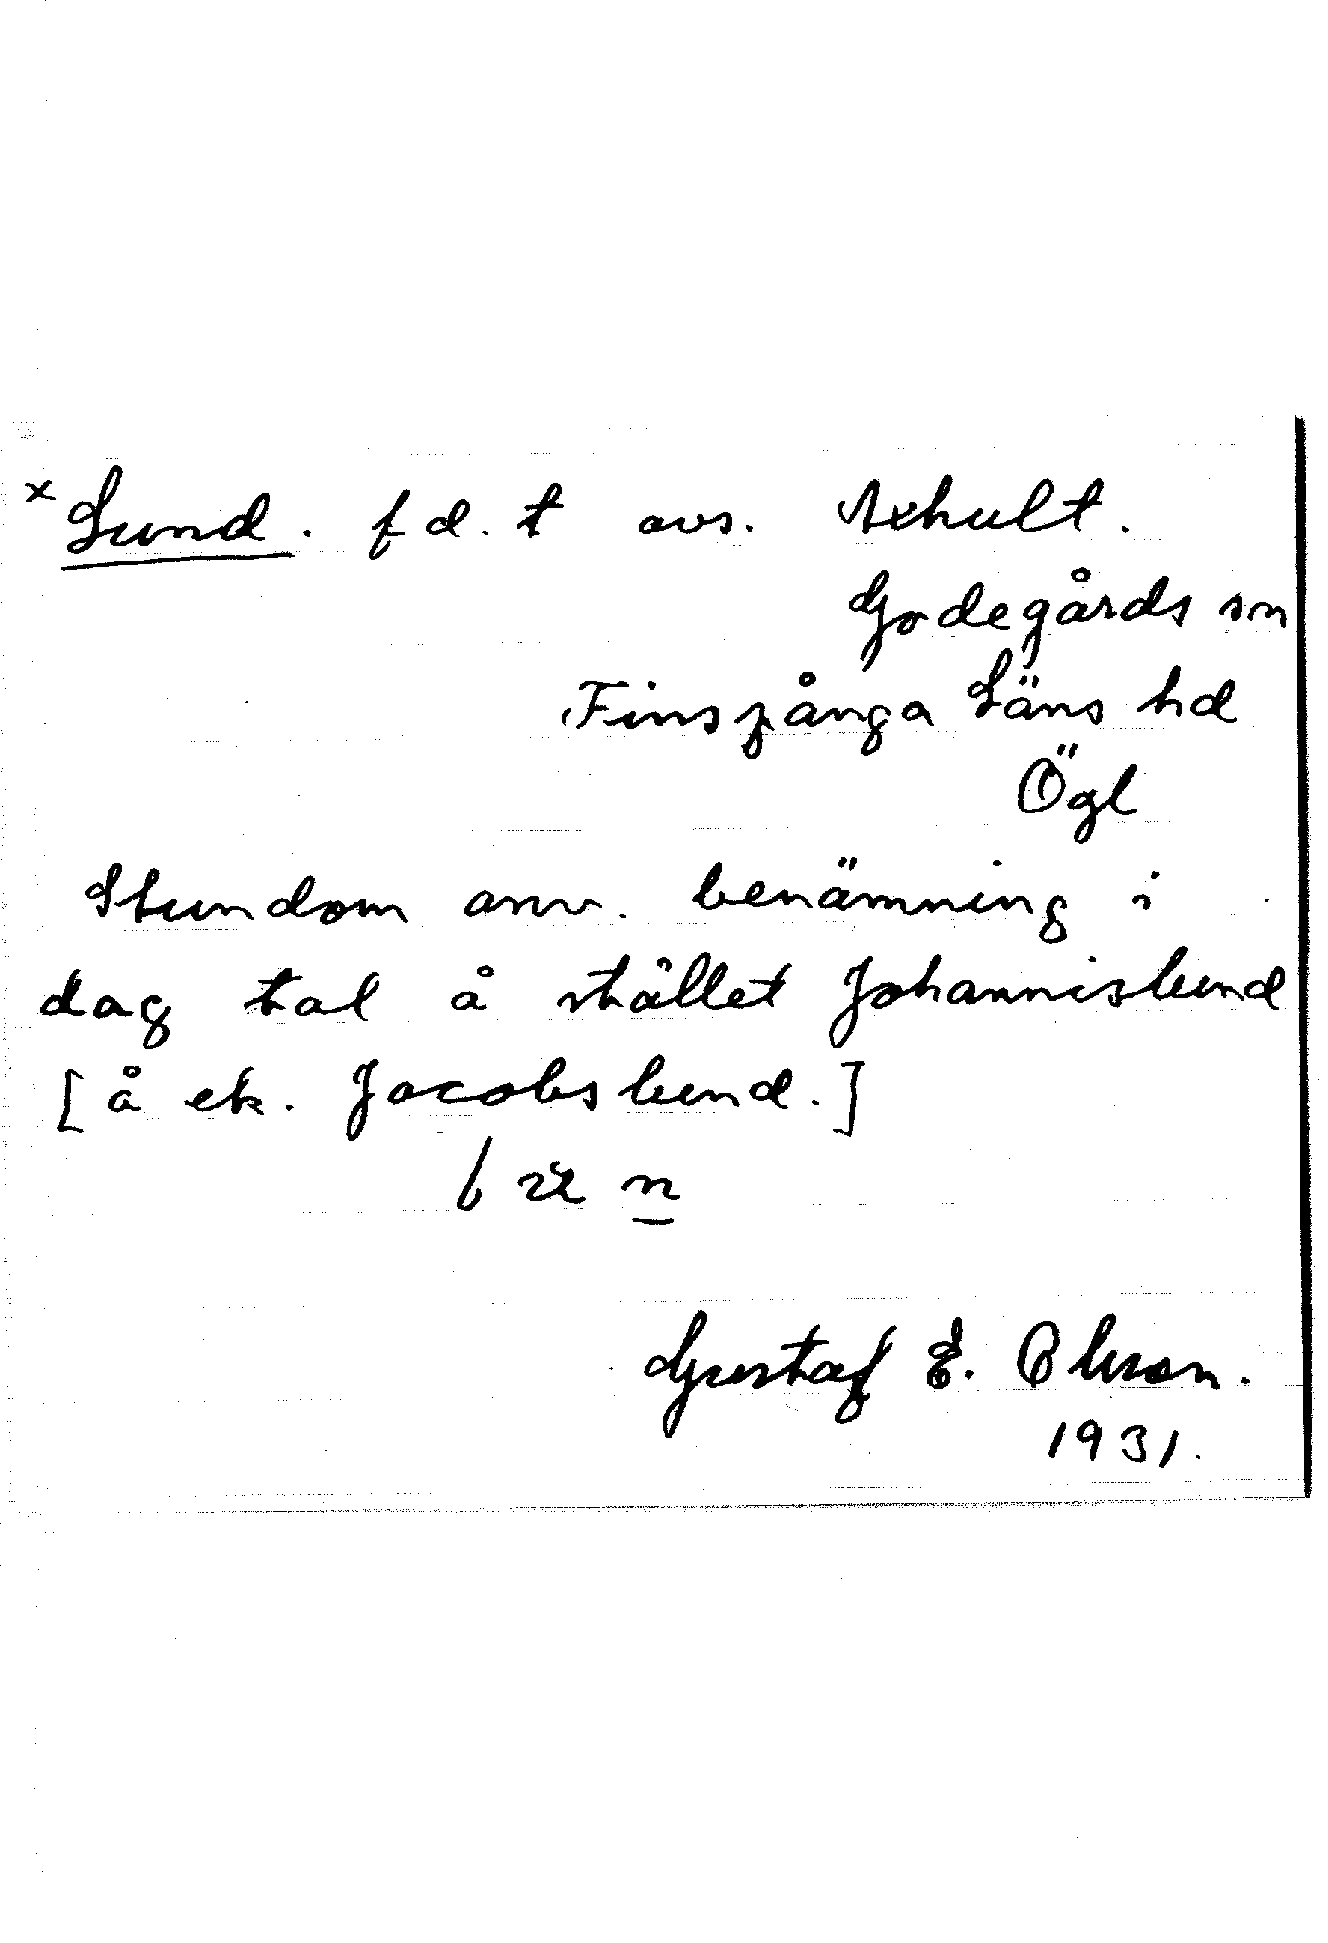 x Lund. f d. t avs. Axhult.
Godegårds sn
Finspånga Läns hd
Ögl
Stundom anv. benämning i
dag tal å stället Johannislund
[å ek. Jacobslund.]
n
Gustaf E. Olsson.
1931.